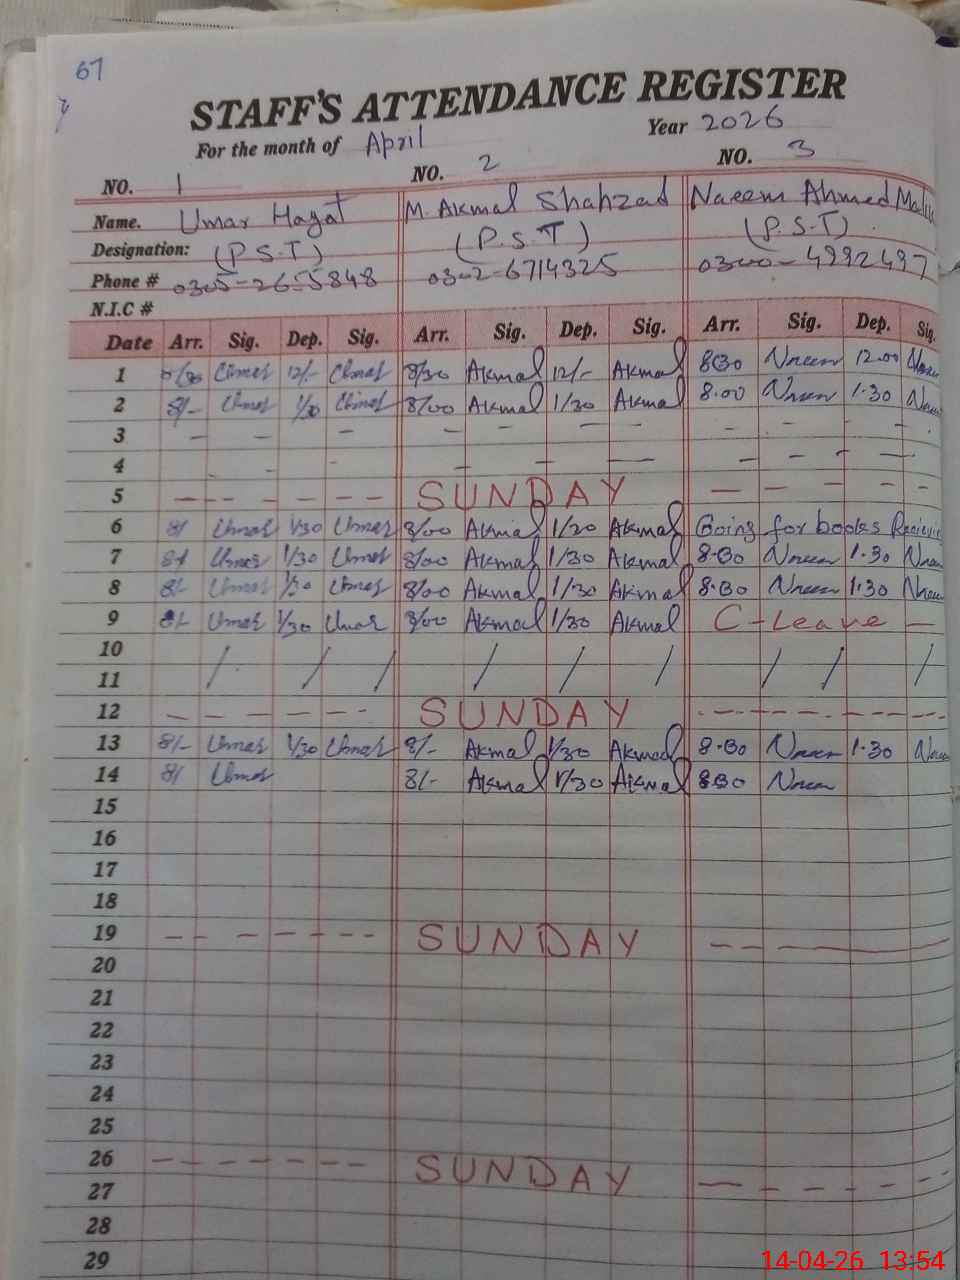 67
STAFF'S ATTENDANCE REGISTER
For the month of April Year 2026
NO. 1 NO. 2 NO. 3
Name. Umar Hayat M. Akmal Shahzad Naeem Ahmed Malik
Designation: (P.S.T) (P.S.T) (P.S.T)
Phone # 0305-2655848 0302-6714325 0300-4992497
N.I.C #
Date Arr. Sig. Dep. Sig. Arr. Sig. Dep. Sig. Arr. Sig. Dep. Sig.
1 8/30 Umar 12/- Umar 8/30 Akmal 12/- Akmal 8:30 Naeem 12.00 Naeem
2 8/- Umar 1/30 Umar 8/00 Akmal 1/30 Akmal 8.00 Naeem 1.30 Naeem
3 - - - - - - - - - - -
4 - - - - - - - - - -
5 - - - - - - SUNDAY - - - - -
6 8/ Umar 1/30 Umar 8/00 Akmal 1/20 Akmal Going for books Recieving
7 8/ Umar 1/30 Umar 8/00 Akmal 1/30 Akmal 8.30 Naeem 1.30 Naeem
8 8/- Umar 1/30 Umar 8/00 Akmal 1/30 Akmal 8.30 Naeem 1.30 Naeem
9 8/- Umar 1/30 Umar 8/00 Akmal 1/30 Akmal C-Leave -
10
11 / / / / / / / / /
12 - - - - - - SUNDAY - - - - - -
13 8/- Umar 1/30 Umar 8/- Akmal 1/30 Akmal 8.30 Naeem 1.30 Naeem
14 8/ Umar 8/- Akmal 1/30 Akmal 8:30 Naeem
15
16
17
18
19 - - - - - - SUNDAY - - -
20
21
22
23
24
25
26 - - - - - - - SUNDAY - - - - - -
27
28
29
14-04-26 13:54